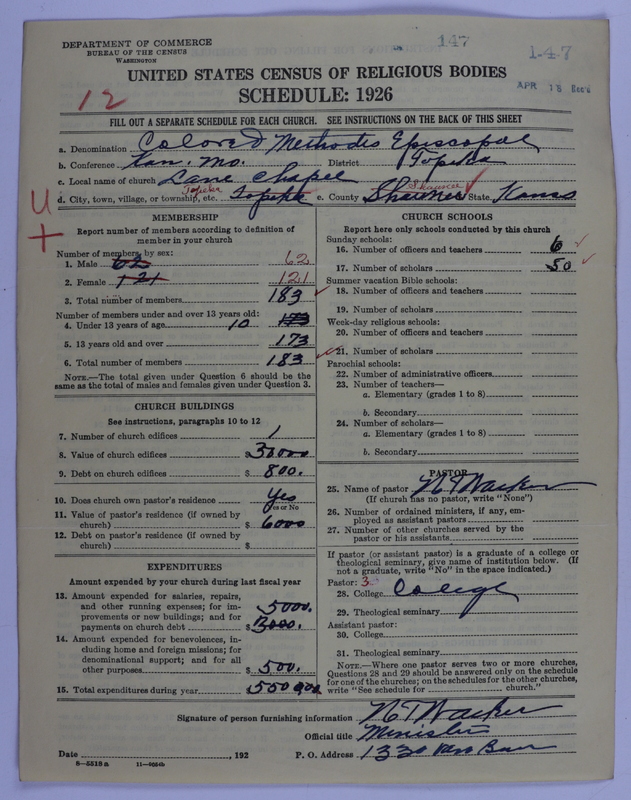 DEPARTMENT OF COMMERCE
BUREAU OF THE CENSUS
WASHINGTON
147
147
APR 18 Rec'd
UNITED STATES CENSUS OF RELIGIOUS BODIES
SCHEDULE: 1926
12
FILL OUT A SEPARATE SCHEDULE FOR EACH CHURCH. SEE INSTRUCTIONS ON THE BACK OF THIS SHEET
a. Denomination Colored Methodis Episcopal
b. Conference Kan. Mo. District Topeka
c. Local name of church Lane Chapel
Topeka Shawnee
d. City, town, village, or township, etc. Topeka e. County Shawnee State Kansas
U
+
MEMBERSHIP
Report number of members according to definition of
member in your church
Number of members, by sex:
1. Male 62 62
2. Female 121 121
3. Total number of members 183
Number of members under and over 13 years old:
4. Under 13 years of age 10 173
5. 13 years old and over 173
6. Total number of members 183
NOTE.—The total given under Question 6 should be the
same as the total of males and females given under Question 3.
CHURCH BUILDINGS
See instructions, paragraphs 10 to 12
7. Number of church edifices 1
8. Value of church edifices $30000
9. Debt on church edifices $800.
10. Does church own pastor's residence yes
Yes or No
11. Value of pastor's residence (if owned by
church) $6000
12. Debt on pastor's residence (if owned by
church) $
EXPENDITURES
Amount expended by your church during last fiscal year
13. Amount expended for salaries, repairs,
and other running expenses; for im-
provements or new buildings; and for
payments on church debt 5000.
$3000.
14. Amount expended for benevolences, in-
cluding home and foreign missions; for
denominational support; and for all
other purposes $500.
15. Total expenditures during year
CHURCH SCHOOLS
Report here only schools conducted by this church
Sunday schools:
16. Number of officers and teachers 6
17. Number of scholars 50
Summer vacation Bible schools:
18. Number of officers and teachers
19. Number of scholars
Week-day religious schools:
20. Number of officers and teachers
21. Number of scholars
Parochial schools:
22. Number of administrative officers
23. Number of teachers—
a. Elementary (grades 1 to 8)
b. Secondary
24. Number of scholars—
a. Elementary (grades 1 to 8)
b. Secondary
PASTOR
25. Name of pastor
(If church has no pastor, write "None")
26. Number of ordained ministers, if any, em-
ployed as assistant pastors
27. Number of other churches served by the
pastor or his assistants
If pastor (or assistant pastor) is a graduate of a college or
theological seminary, give name of institution below. (If
not a graduate, write "No" in the space indicated.)
Pastor: 3
28. College College
29. Theological seminary
Assistant pastor:
30. College
31. Theological seminary
NOTE.—Where one pastor serves two or more churches,
Questions 28 and 29 should be answered only on the schedule
for one of the churches; on the schedules for the other churches,
write "See schedule for church."
Signature of person furnishing information
Official title Minister
Date , 192 P. O. Address 1330
8—5518a 11—9054b